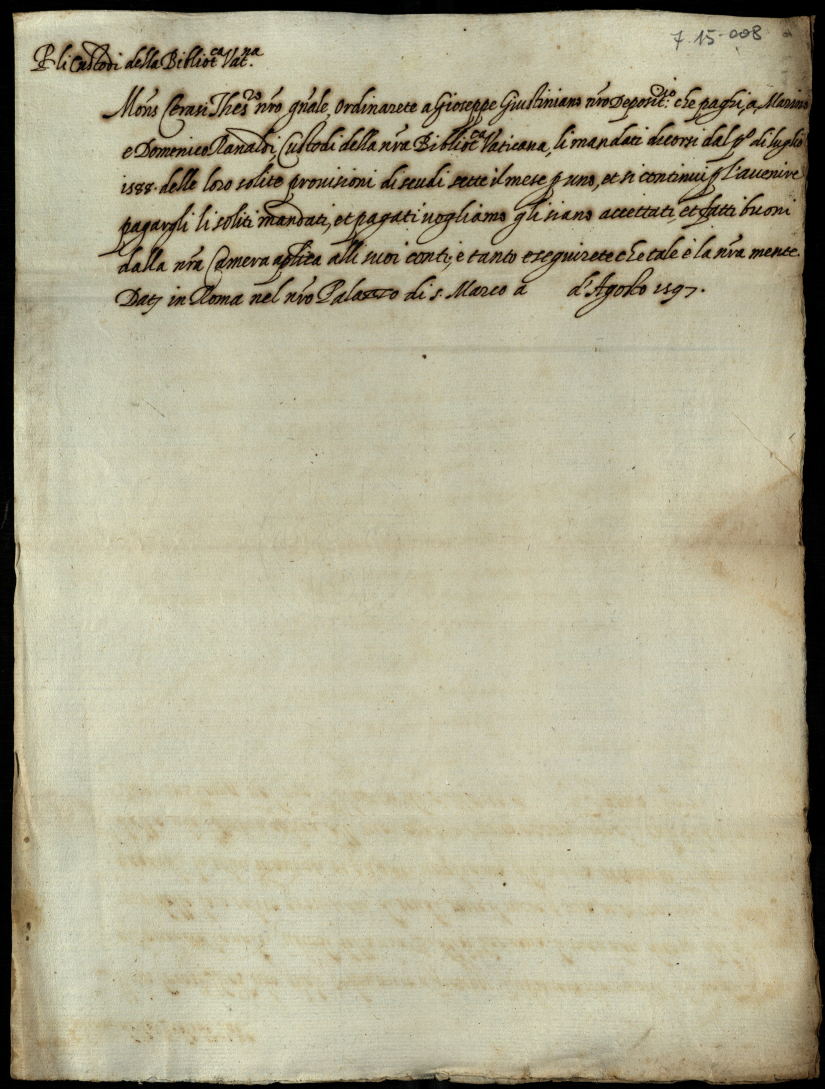 7.15.008
P li Custodi della Bibliot.ca Vat.na
Mons Cerasi Thes.ro nr̃o gñale, Ordinarete a Gioseppe Giustiniano nr̃o Deposit.rio che paghi, a, Marino
e Domenico Ranaldi, Custodi della nr̃a Bibliot.ca Vaticana, li mandati decorsi dal p.o di luglio
1588. delle loro solite provisioni di scudi sette il mese p uno, et si continui p l'auenire
pagargli li soliti mandati, et pagati uogliamo gli siano accettati, et fatti buoni
dalla nr̃a Camera aplica alli suoi conti; e tanto eseguirete che tale è la nr̃a mente.
Datz in Roma nel nr̃o Palazzo di s. Marco a d'Agosto 1597.